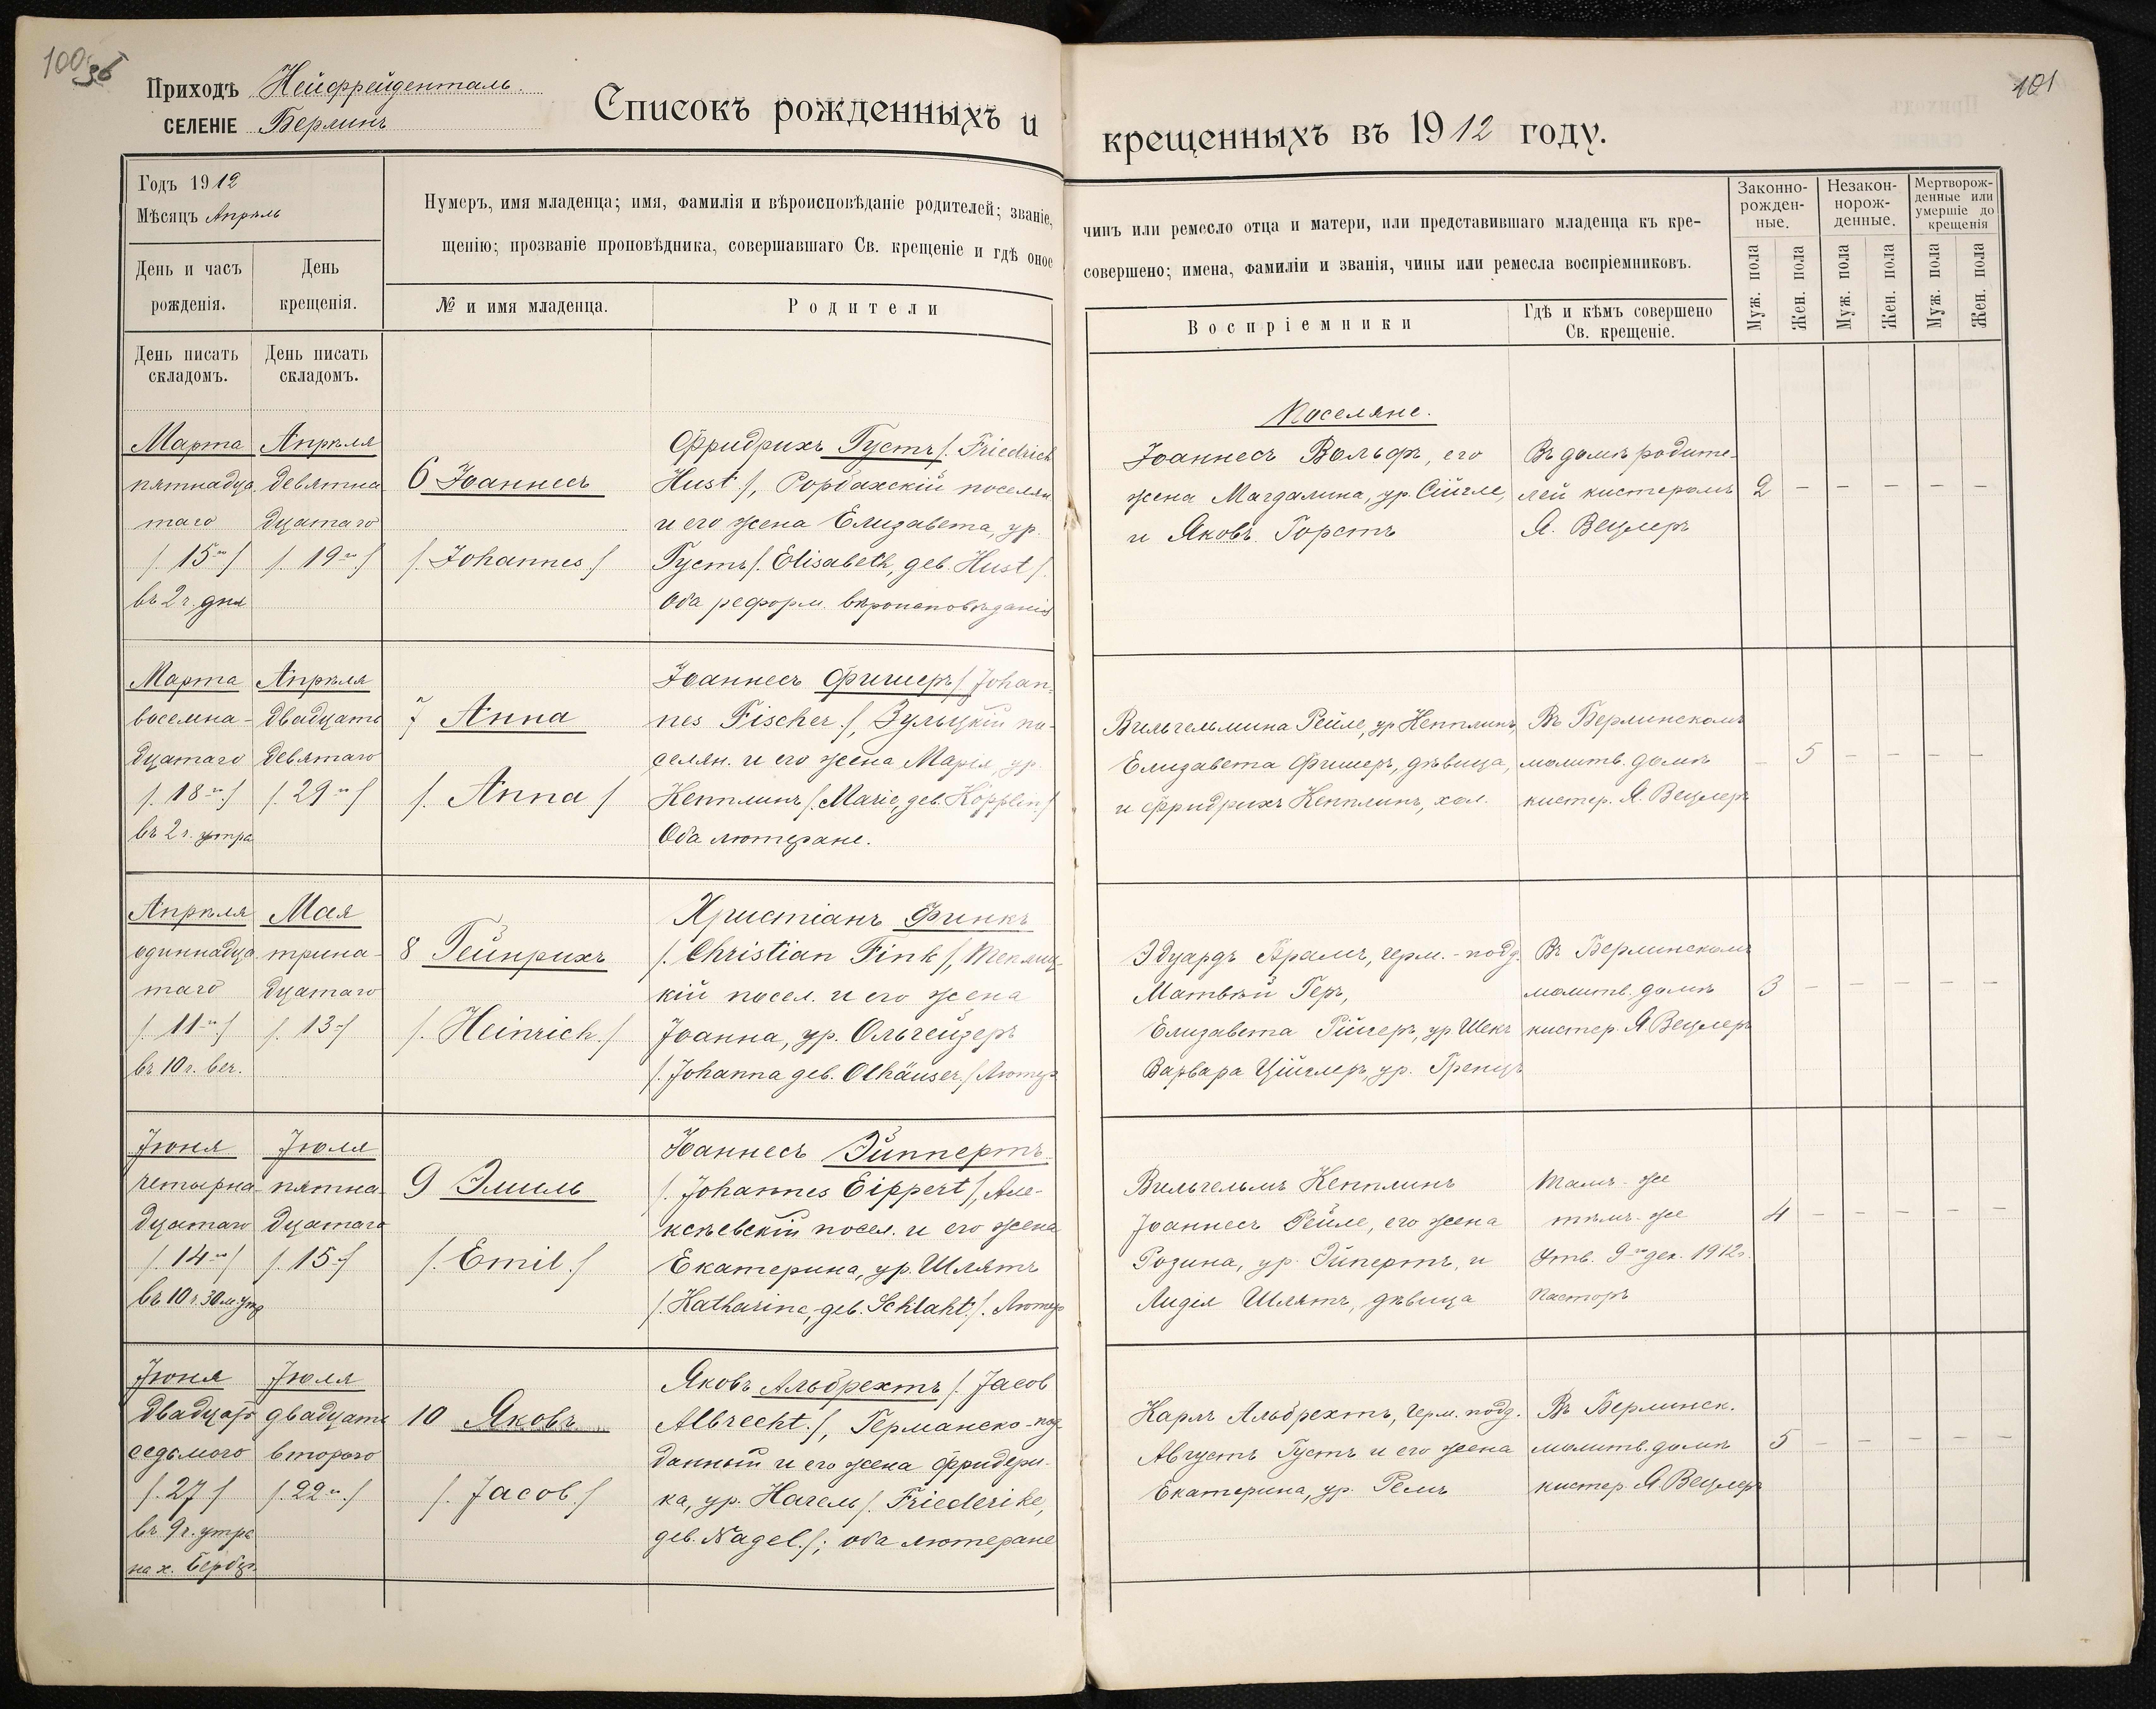 100
36
101
Приходъ Нейфрейденталь.
СЕЛЕНІЕ Берлинъ
Списокъ рожденныхъ и крещенныхъ въ 1912 году.
Годъ 1912
Мѣсяцъ Апрѣль
День и часъ рожденія.
День крещенія.
Нумеръ, имя младенца; имя, фамилія и вѣроисповѣданіе родителей; званіе, чинъ или ремесло отца и матери, или представившаго младенца къ кре-
щенію; прозваніе проповѣдника, совершавшаго Св. крещеніе и гдѣ оное совершено; имена, фамиліи и званія, чины или ремесла воспріемниковъ.
№ и имя младенца.
Родители
Воспріемники
Гдѣ и кѣмъ совершено
Св. крещеніе.
Законно-
рожден-
ные.
Незакон-
норож-
денные.
Мертворож-
денные или
умершіе до
крещенія
Муж. пола
Жен. пола
Муж. пола
Жен. пола
Муж. пола
Жен. пола
День писать
складомъ.
День писать
складомъ.
Марта
пятнадца
таго
/. 15го /
въ 2 ч. дня
Апрѣля
девятна
дцатаго
/. 19го /
6 Іоаннесъ
/. Johannes /
Фридрихъ Густъ /. Friedrich
Hust /, Рорбахскій поселян
и его жена Елизавета, ур.
Густъ /. Elisabeth, geb. Hust /.
Оба реформ. вѣроисповѣданія
Поселяне.
Іоаннесъ Вольфъ, его
жена Магдалина, ур. Сійгле,
и Яковъ Горстъ
Въ домѣ родите-
лей кистеромъ
Я. Вецлеръ
2 – – – – –
Марта
восемна-
дцатаго
/. 18го /
въ 2 ч. утра
Апрѣля
двадцать
девятаго
/. 29го /
7 Анна
/. Anna /
Іоаннесъ Фишеръ /. Johan-
nes Fischer. /, Зульцкій по-
селян. и его жена Марія, ур.
Кепплинъ /. Marie, geb. Köpplin /
Оба лютеране.
Вильгельмина Рейле, ур. Кепплинъ,
Елизавета Фишеръ, дѣвица,
и Фридрихъ Кепплинъ, хол.
Въ Берлинскомъ
молитв. домѣ
кистер. Я. Вецлеръ
– 5 – – – –
Апрѣля
одиннадца
таго
/. 11го /
въ 10 ч. веч.
Мая
трина-
дцатаго
/. 13 /
8 Гейнрихъ
/. Heinrich. /
Христіанъ Финкъ
/. Christian Fink /,
кій посел. и его жена
Іоанна, ур. Ольгейзеръ
/. Johanna geb. Olhäuser. / Лютер
Эдуардъ Брамъ, герм.-подд.
Матвѣй Геръ,
Елизавета ур. Шекъ
Варвара Ційглеръ, ур.
Въ Берлинскомъ
молитв. домѣ
кистер. Я. Вецлеръ
3 – – – – –
Іюня
четырна-
дцатаго
/. 14го /
въ 10 ч 30 м утр
Іюля
пятна-
дцатаго
/. 15 /
9 Эмиль
/. Emil. /
Іоаннесъ Эйппертъ
/. Johannes Eippert /, Але-
ксѣевскій посел. и его жена
Екатерина, ур. Шлятъ
/. Katharina, geb. Schlaht. /. Лютер
Вильгельмъ Кепплинъ
Іоаннесъ Рейле, его жена
Розина, ур. Эйпертъ, и
Лидія Шлятъ, дѣвица
Тамъ-же
тѣмъ-же
Утв. 9го дек. 1912 г.
Пасторъ
4 – – – – –
Іюня
двадцать
седьмого
/. 27 /
въ 9 ч. утра
на х.
Іюля
двадцать
второго
/. 22го /
10 Яковъ
/. Jacob. /
Яковъ Альбрехтъ /. Jacob
Albrecht. /, Германско-под-
данный и его жена Фридери-
ка, ур. Нагель /. Friederike,
geb. Nagel. /; оба лютеране
Карлъ Альбрехтъ, герм. подд.
Августъ Густъ и его жена
Екатерина, ур. Ремъ
Въ Берлинск.
молитв. домѣ
кистер. Я. Вецлеръ
5 – – – – –